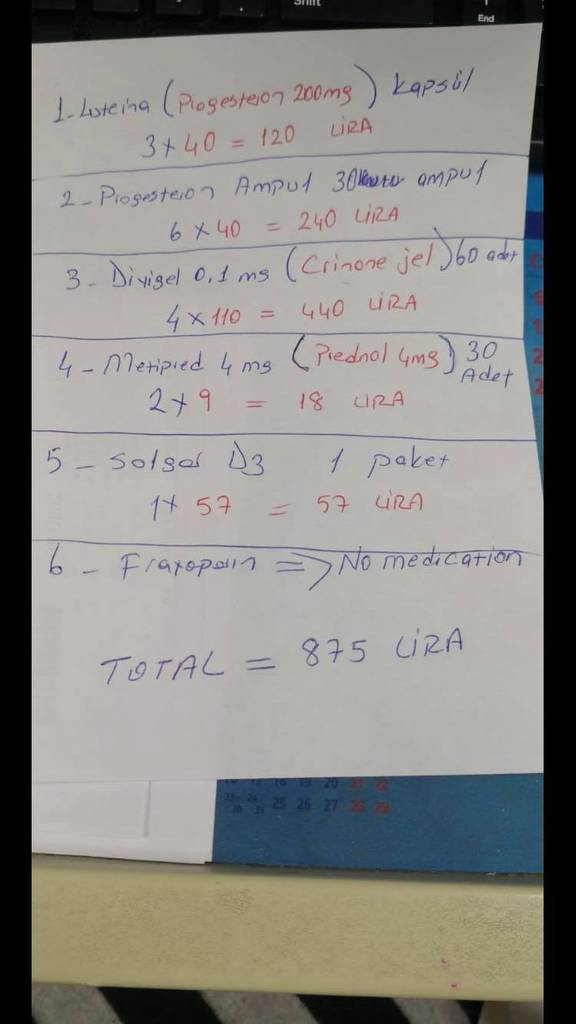 Shift
End
1-Luteina (Progesteron 200mg) kapsül
3x40 = 120 LİRA
2-Progesteron Ampul 30 ampul
6 x 40 = 240 LİRA
3-Divigel 0,1 mg (Crinone jel) 60 adet
4 x 110 = 440 LİRA
4-Metipred 4 mg (Prednol 4mg) 30 Adet
2 x 9 = 18 LİRA
5-Solgar D3 1 paket
1x 57 = 57 LİRA
6-Fraxoparin => No medication
TOTAL = 875 LİRA
18 19 20 21 22
25 26 27 28 29